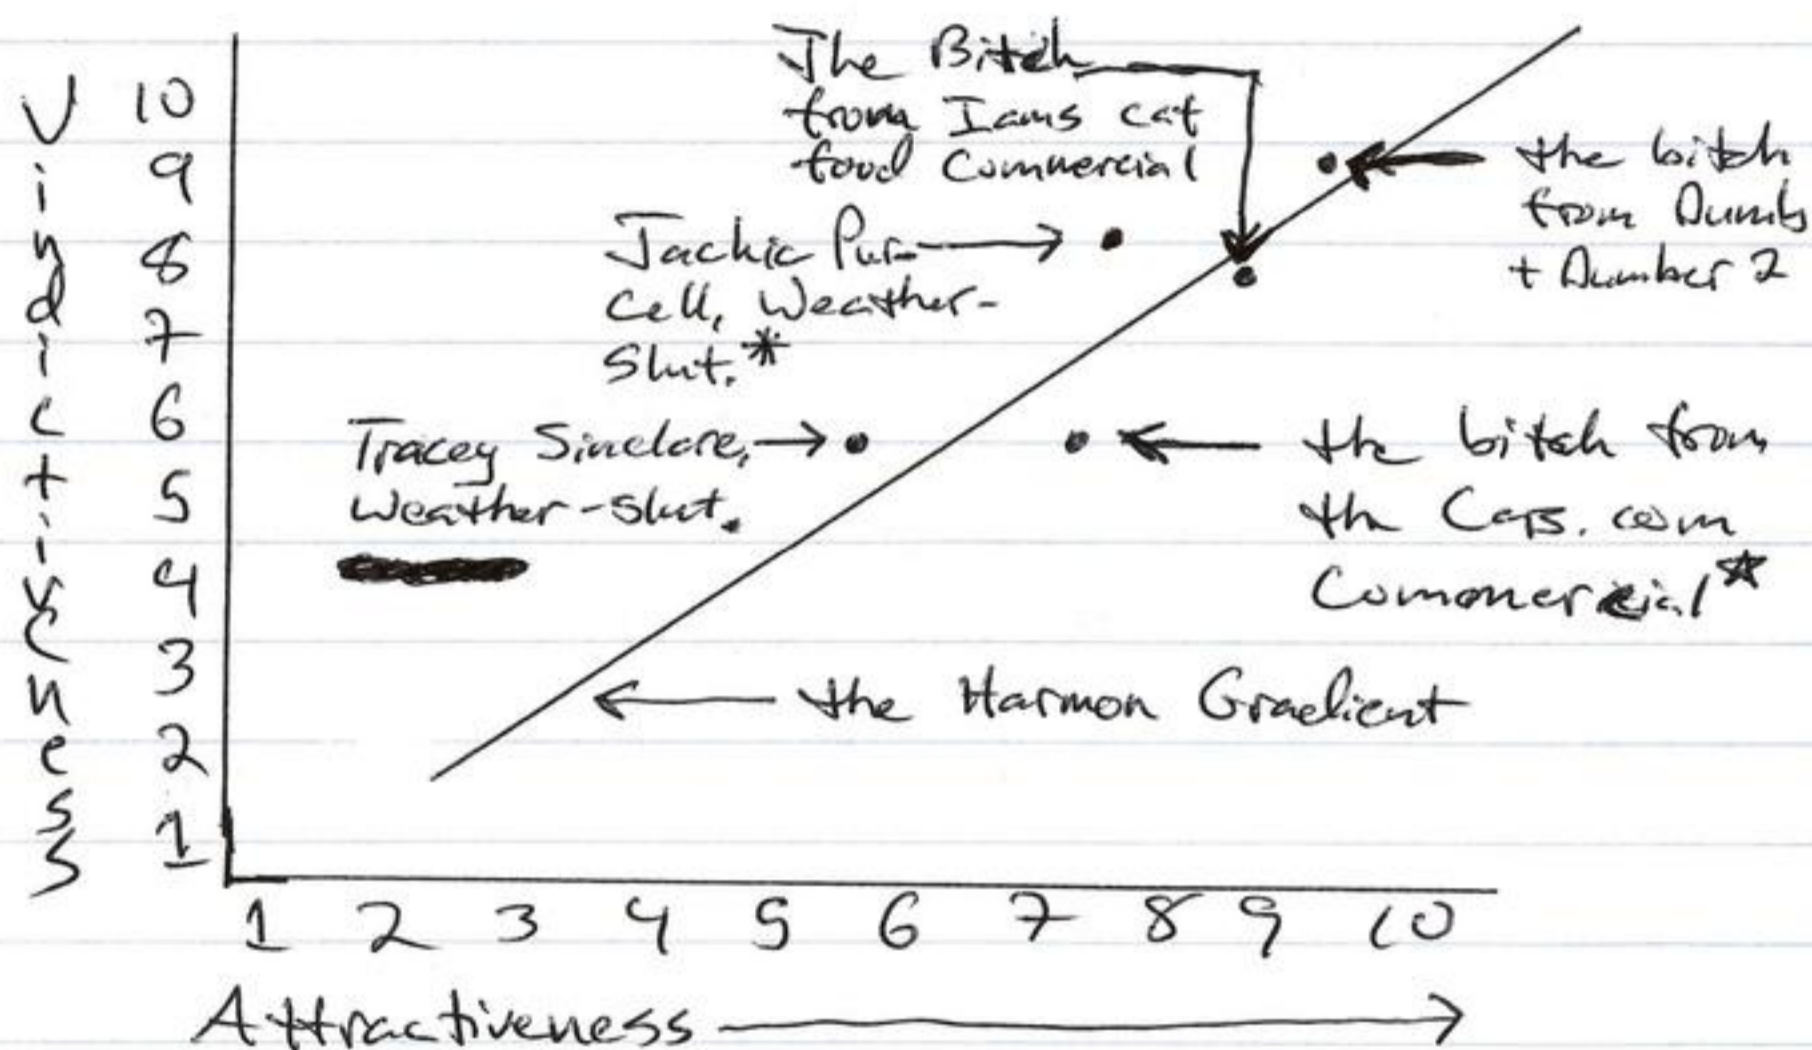 Vindictiveness
10
9
8
7
6
5
4
3
2
1
The Bitch
from Iams cat
food Commercial
the bitch
from Dumb
+ Dumber 2
Jackie Pur-
Cell, Weather-
Slut.*
Tracey Sinclare,
Weather-Slut.
the bitch from
the Cars.com
Commercial*
the Harmon Gradient
1 2 3 4 5 6 7 8 9 10
Attractiveness